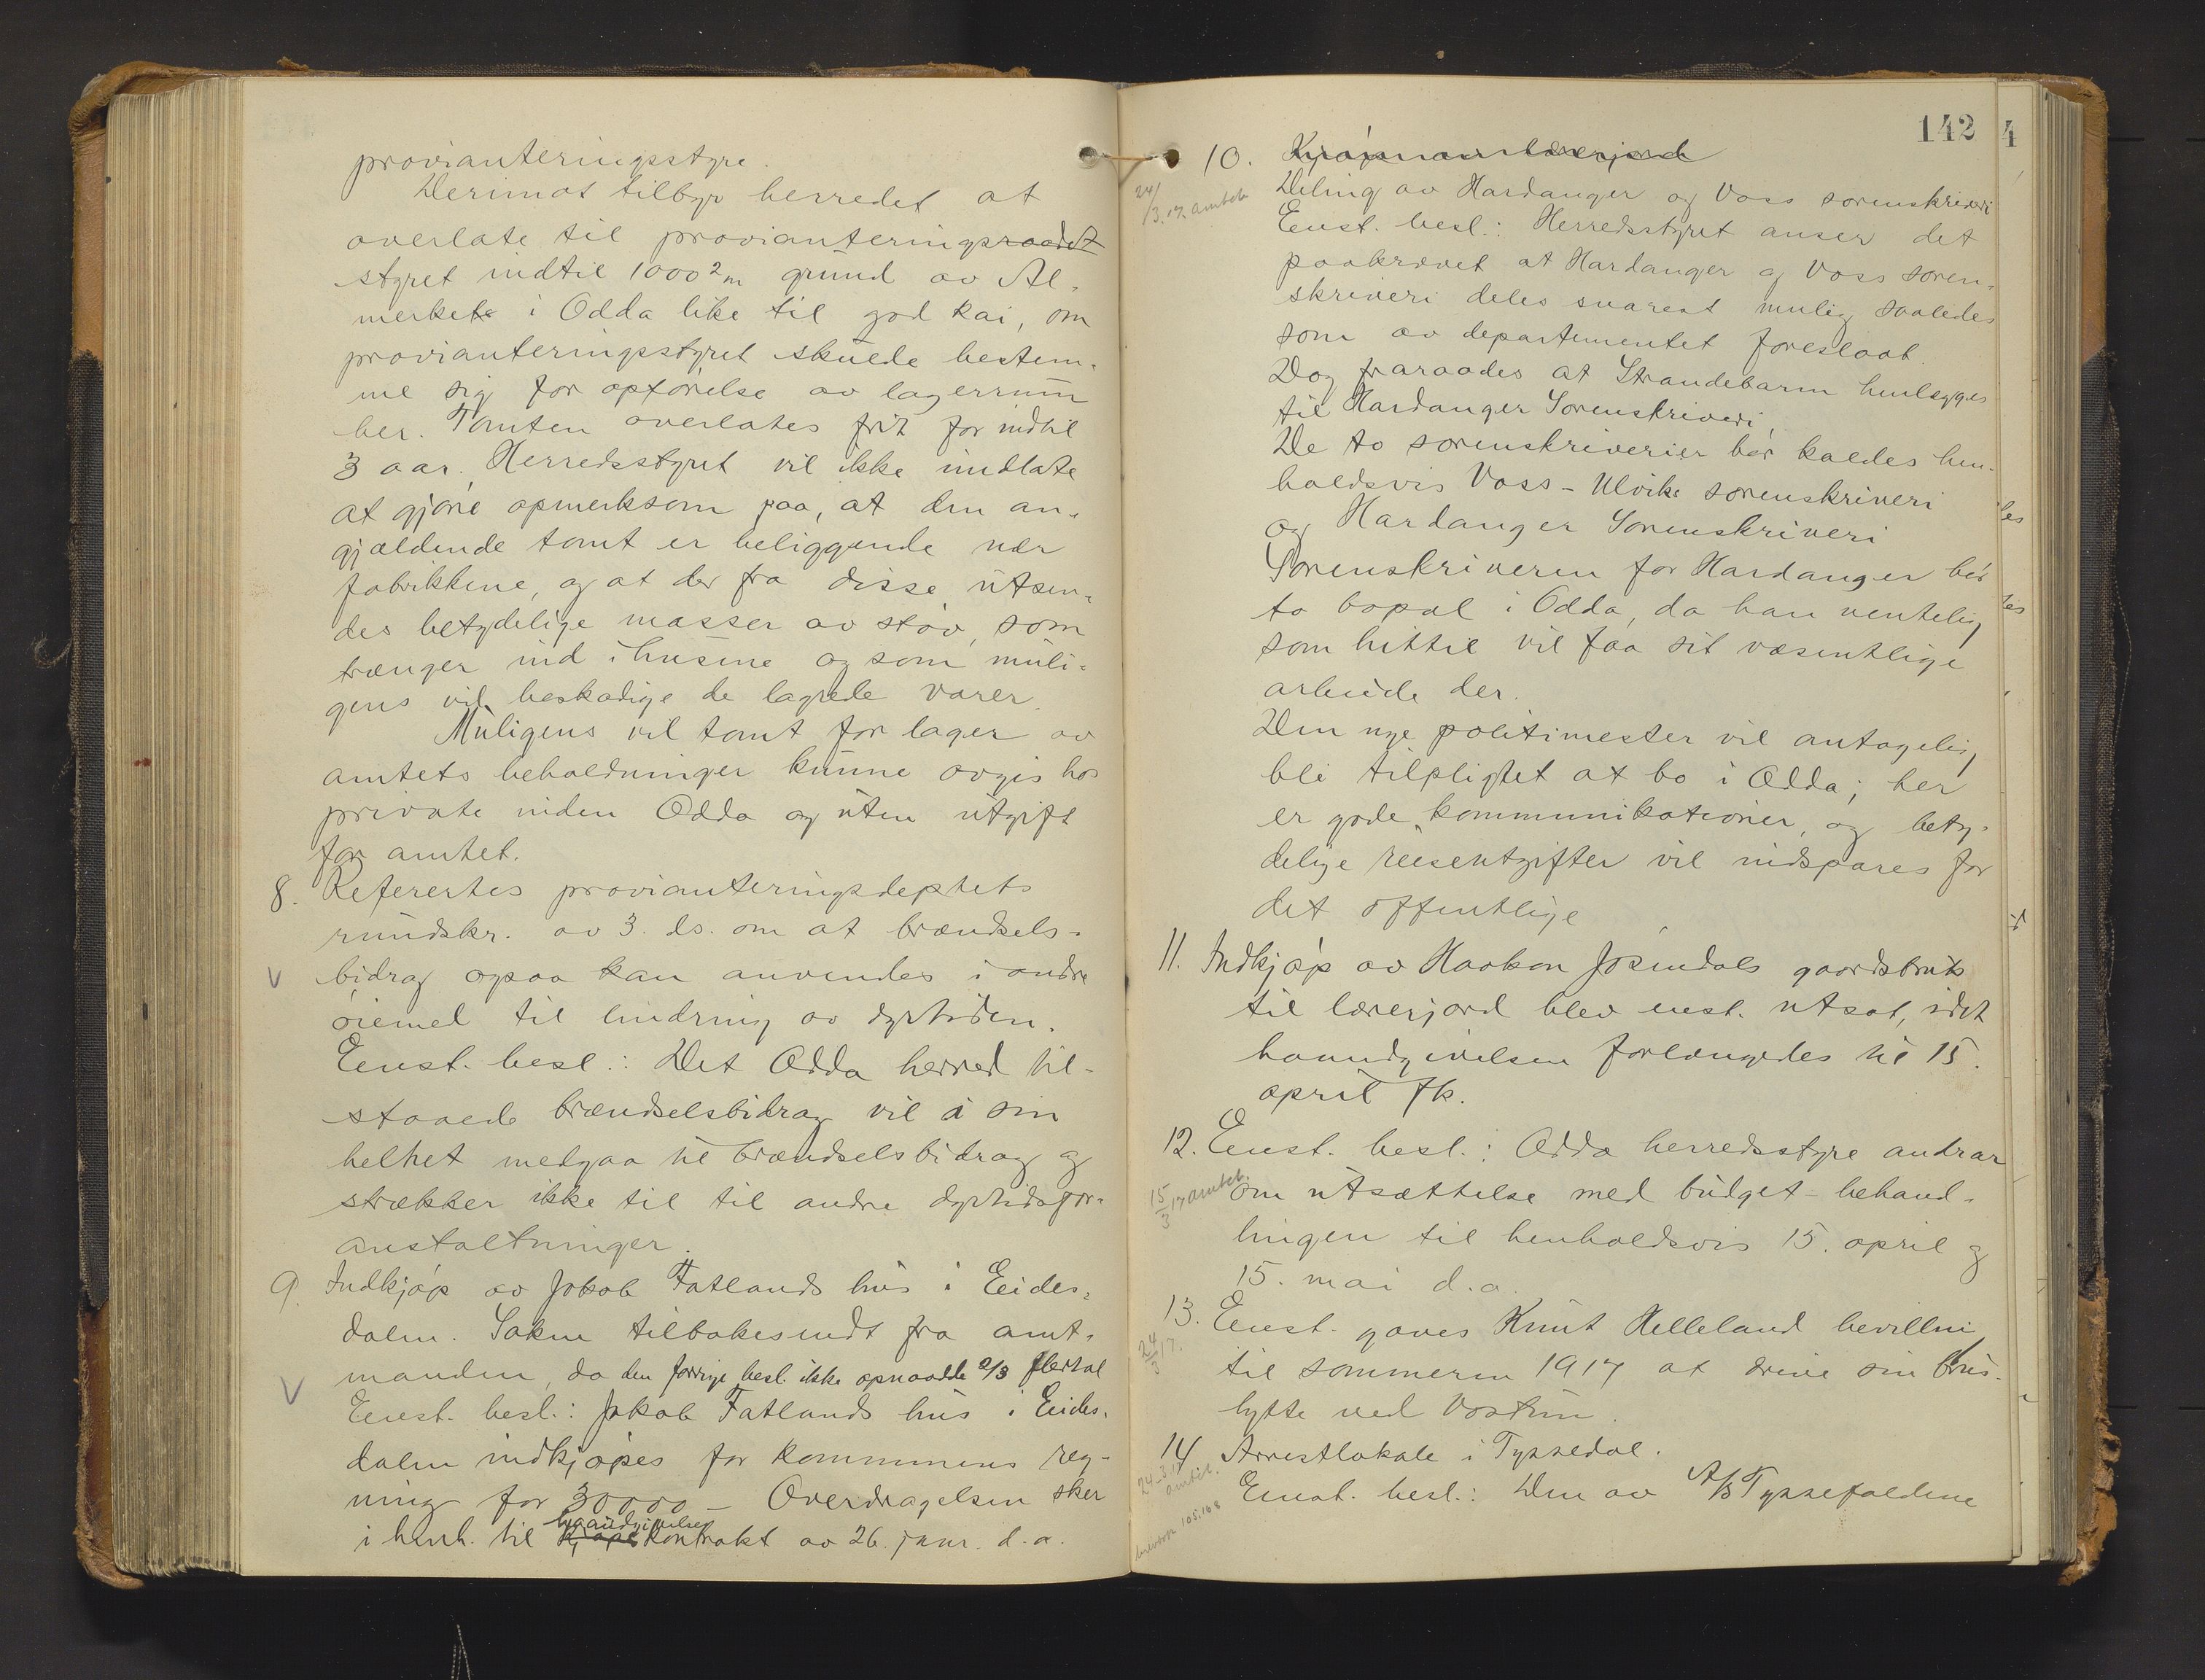 provianteringsstyre.
Derimot tilbyr herredet at
overlate til provianteringsraadet
styret indtil 1000 2m grund av Al-
merket i Odda like til god kai, om
provianteringsstyret skulde bestem-
me sig for opførelse av lagerrum
her. Tomten overlates frit for indtil
3 aar. Herredsstyret vil ikke undlate
at gjøre opmerksom paa, at den an-
gjældende tomt er beliggende nær
fabrikkene, og at der fra disse utsen-
des betydelige masser av støv, som
trænger ind i husene og som muli-
gens vil beskadige de lagrede varer.
Muligens vil tomt for lager av
amtets beholdninger kunne avgis hos
private inden Odda og uten utgift
for amtet.
8. Referertes provianteringsdeptets
rundskr. av 3. ds. om at brændsels-
V bidrag ogsaa kan anvendes i andre
øiemed til lindring av dyrtiden.
Eenst. besl.: Det Odda herred til-
staaede brændselsbidrag vil i sin
helhet medgaa til brændselsbidrag og
strækker ikke til til andre dyrtidsfor-
anstaltninger.
9. Indkjøp av Jakob Fatlands hus i Eides-
dalen. Saken tilbakesendt fra amt-
manden, da den forrige besl. ikke opnaadde 2/3 flertal
V Eenst. besl.: Jakob Fatlands hus i Eides-
dalen indkjøpes for kommunens reg-
ning for 30000 - Overdragelsen sker
haandgivelses
i henh. til kjøpekontrakt av 26. janr. d.a.
142
4
10. Kjøp av lærerjord
24/3.17. amtet
Deling av Hardanger og Voss sorenskriveri
Eenst. besl.: Herredsstyret anser det
paakrævet at Hardanger og Voss soren-
skriveri deles snarest mulig saaledes
som av departementet foreslaat.
Dog fraraades at Strandebarm henlægges
til Hardanger Sorenskriveri.
De to sorenskriverier bør kaldes hen-
holdsvis Voss-Ulvike sorenskriveri
og Hardanger Sorenskriveri
Sorenskriveren for Hardanger bør
ta bopæl i Odda, da han ventelig
som hittil vil faa sit væsentlige
arbeide der.
Den nye politimester vil antagelig
bli tilpligtet at bo i Odda; her
er gode kommunikationer, og bety-
delige reiseutgifter vil indspares for
det offentlige
11. Indkjøp av Haakon Jøsendals gaardsbruk
til lærerjord blev enst. utsat, idet
haandgivelsen forlængedes til 15.
april fk.
12. Eenst. besl.: Odda herredsstyre andrar
15/3 17 amtet
om utsættelse med budget-behand-
lingen til henholdsvis 15. april og
15. mai d.a.
13. Eenst. gaves Knut Helleland bevilling
24/3 17.
til sommeren 1917 at drive sin brus-
hytte ved Vostun.
14 Arrestlokale i Tyssedal.
24-3.17 amtet.
Eenst. besl.: Den av A/S Tyssefaldene
brevbok 105.168